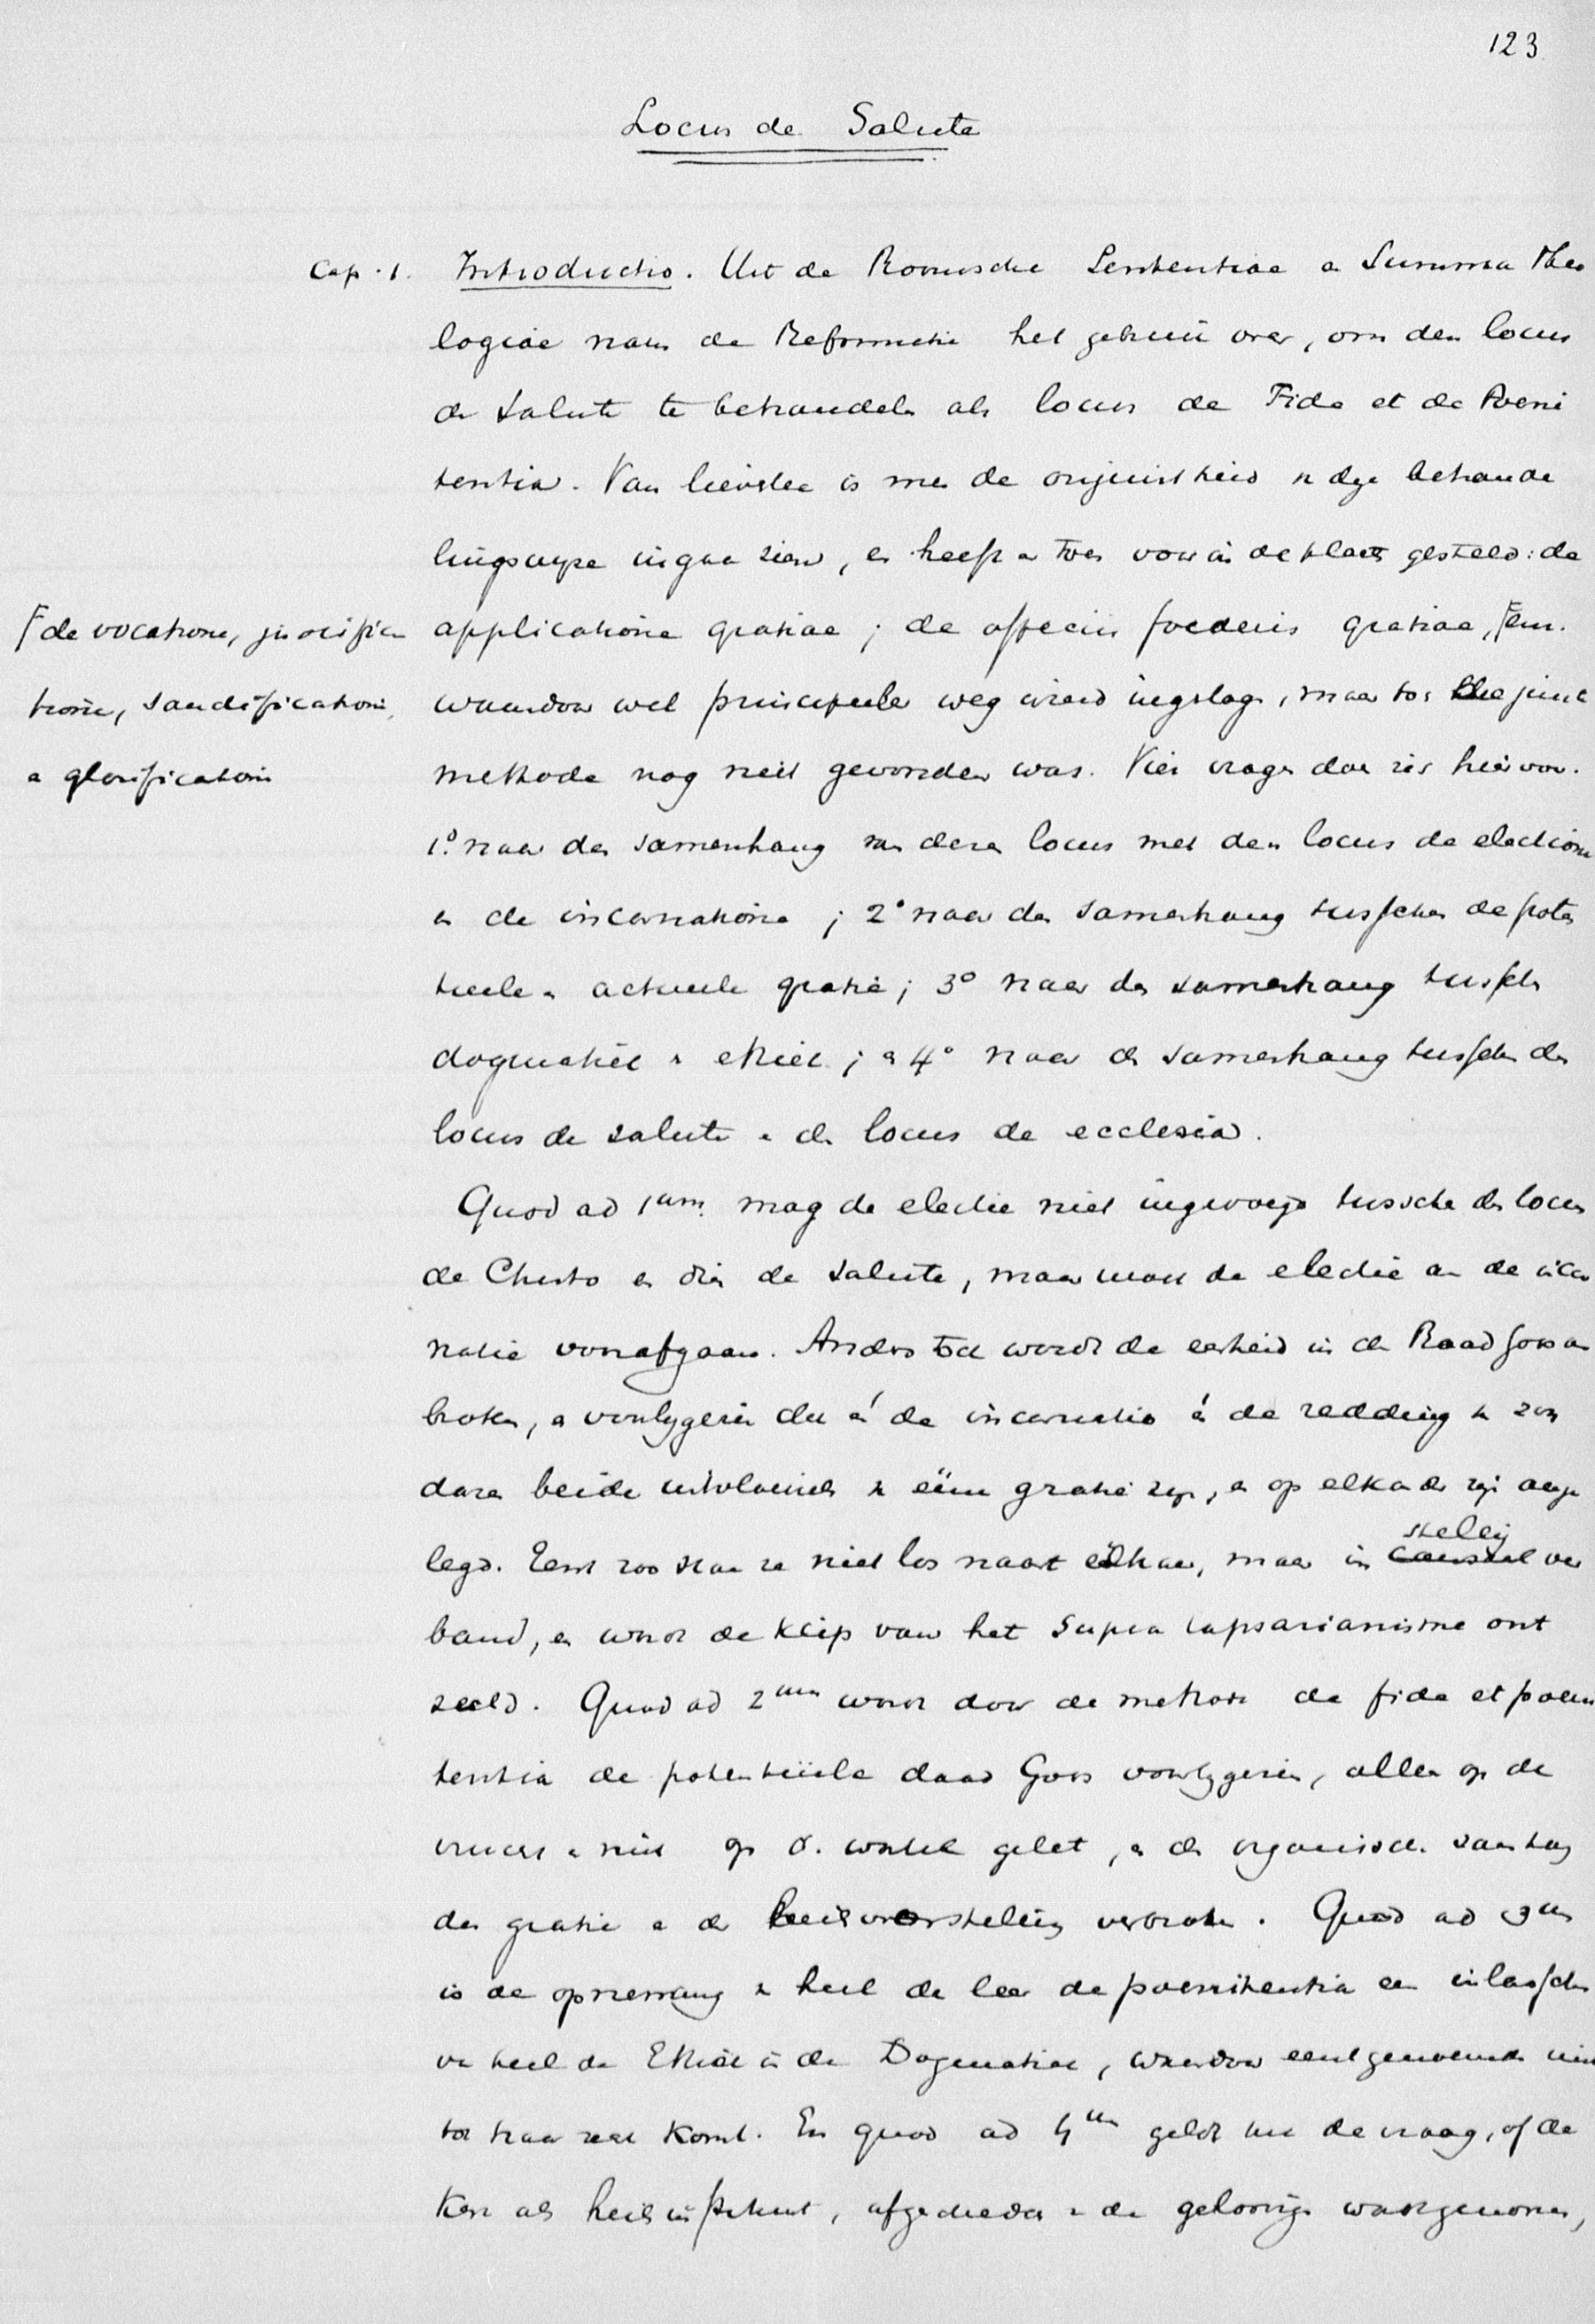 123
Locus de Salute
Cap. 1. Introductio. Uit de Roomsche Sententiae a Summa Theo
logiae nam de Reformatie het gebruik over, om den locus
de Salute te behandelen als locus de Fide et de Poeni
tentia. Van lieverlee is men de onjuistheid v deze behande
lingswijze ingaan zien, en heeft er toen voor in de plaats gesteld: de
applicatione gratiae; de officiis foederis gratiae, ⌈enz.
⌈de vocatione, justifica
tione, sanctificatione,
a glorificatione
waardoor wel principieeler weg werd ingeslagen, maar toch de juiste
methode nog niet gevonden was. Vier vragen doen zich hier voor.
1.º naar den samenhang van dezen locus met den locus de electione
en de incarnatione; 2º naar den samenhang tusschen de poten
tieele en actueele gratie; 3º naar den samenhang tusschen
dogmatiek en ethiek; en 4º naar den samenhang tusschen den
locus de salute en den locus de ecclesia.
Quod ad 1um. mag de electie niet ingevoegd tusschen den locus
de Christo en dien de Salute, maar moet de electie aan de incar
natie voorafgaan. Anders toch wordt de eenheid in den Raad Gods ver
broken, en voorbijgezien dat én de incarnatio én de redding v zon
daren beide uitvloeisels v ééne gratie zijn, en op elkander zijn aange
legd. Eerst zoo staan ze niet los naast elkaar, maar in stellig ver
band, en wordt de klip van het Supra lapsarianisme ont
zeild. Quod ad 2um wordt door de methode de fide et poeni
tentia de potentiëele daad Gods voorbijgezien, alleen op de
vrucht en niet op d. wortel gelet, en de organische samenhang
der gratie en der heilsvoorstelling verbroken. Quod ad 3um
is de opneming v heel de leer de poenitentia een inlasschen
van heel de Ethiek in de Dogmatiek, waardoor eerstgenoemde niet
tot haar recht komt. En quod ad 4um geldt het de vraag, of de
Kerk als heilsinstituut, afgescheiden v de geloovigen waargenomen,